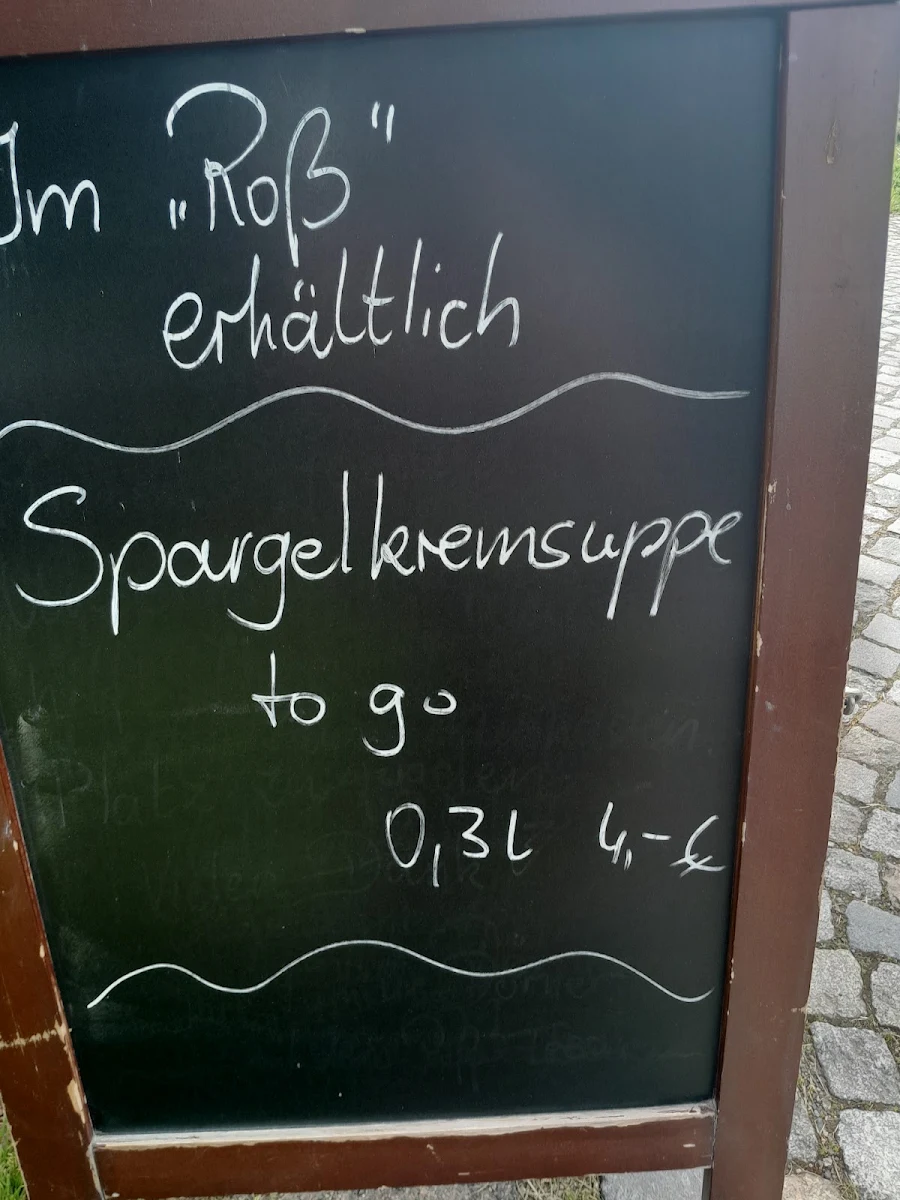 Im „Roß"
erhältlich
Spargelkremsuppe
to go
0,3L 4,-€